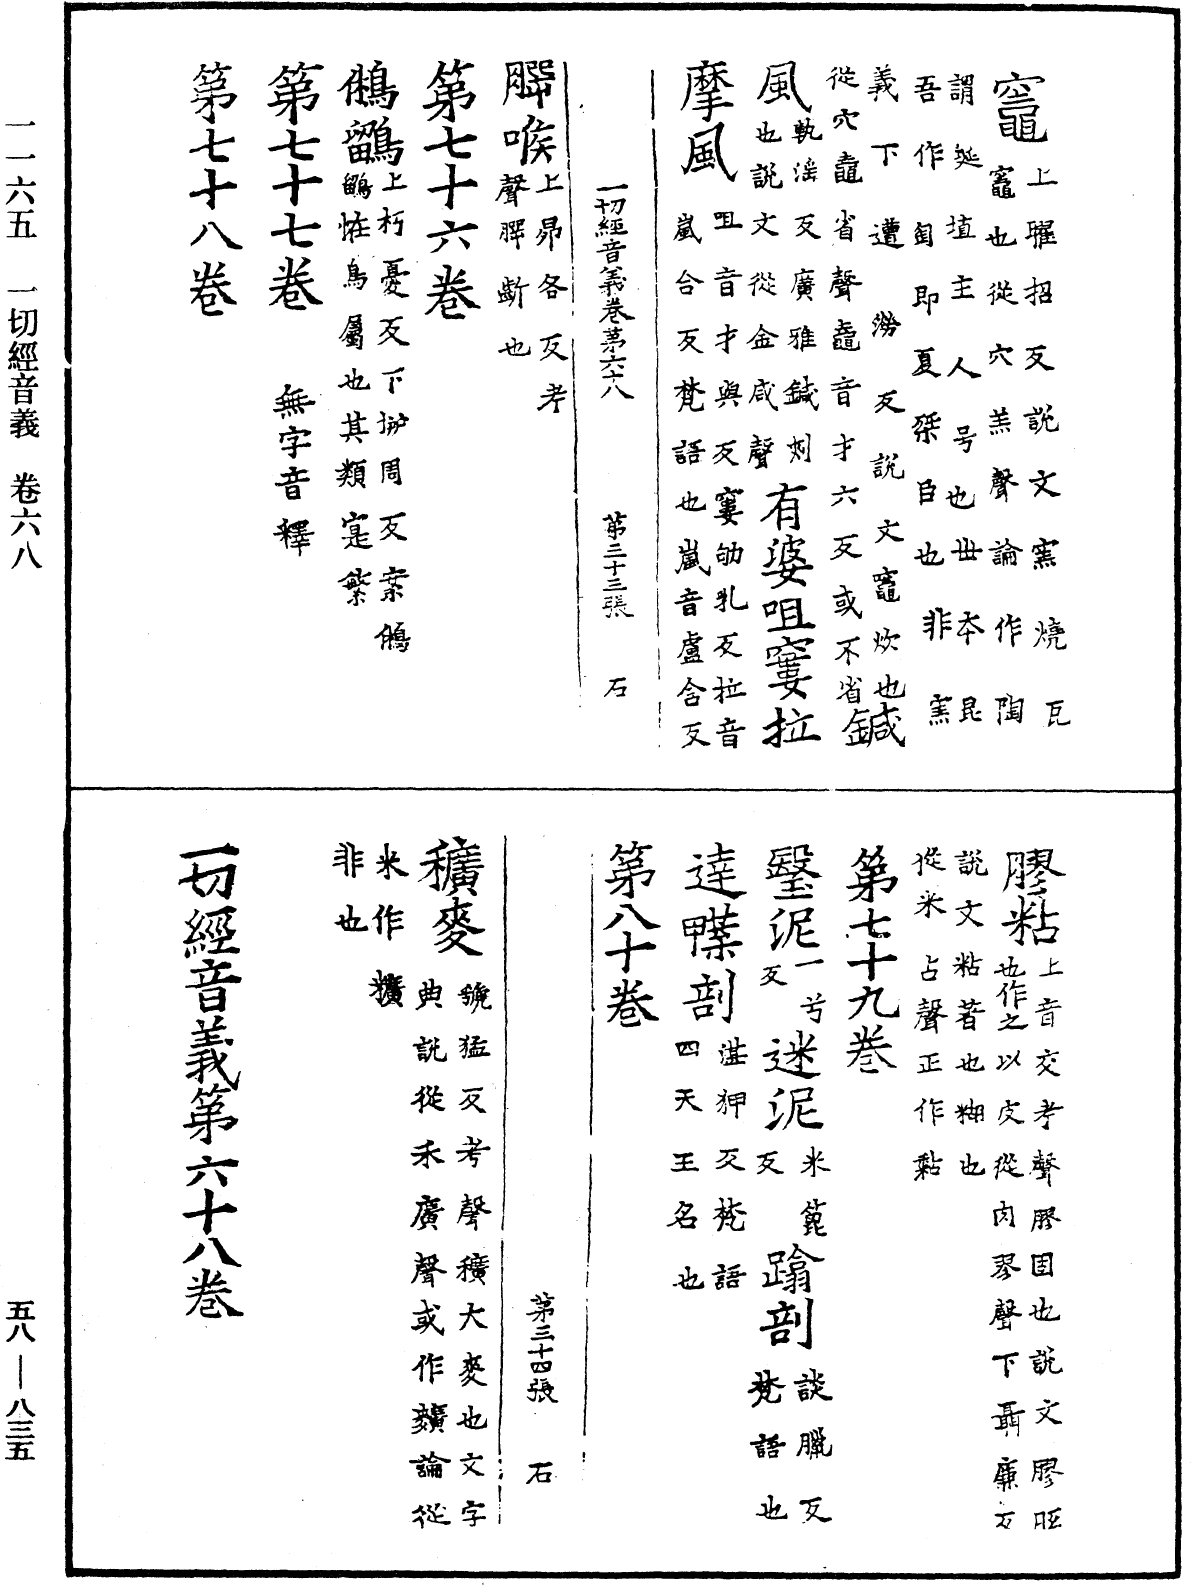 竈上臊招反說文窯燒瓦
竈也從穴羔聲論作陶
謂埏埴主人号也世本昆
吾作匋即夏桀臣也非窯
義下遭澇反說文竈炊也
從穴鼀省聲鼀音才六反或不省鍼
風執淫反廣雅鍼刾
也說文從金咸聲有婆咀窶拉
摩風咀音才與反窶劬乳反拉音
嵐合反梵語也嵐音盧含反
一切經音義卷第六十八 第三十三張 石
膞喉上昴各反考
聲髆斷也
第七十六卷
鵂鶹上朽憂反下柳周反案鵂
鶹恠鳥屬也其類寔繁
第七十七卷 無字音釋
第七十八卷
膠粘上音交考聲膠固也說文膠昵
也作之以皮從肉翏聲下聶廉反
說文粘著也糊也
從米占聲正作黏
第七十九卷
瑿泥一兮反迷泥米箆反蹹剖談臘反梵語也
達㗼剖湛狎反梵語
四天王名也
第八十卷
第三十四張 石
穬麥虢猛反考聲穬大麥也文字
典說從禾廣聲或作䵃論從
米作𥽰
非也
一切經音義第六十八卷
一一六五 一切經音義 卷六八
五八—八三五